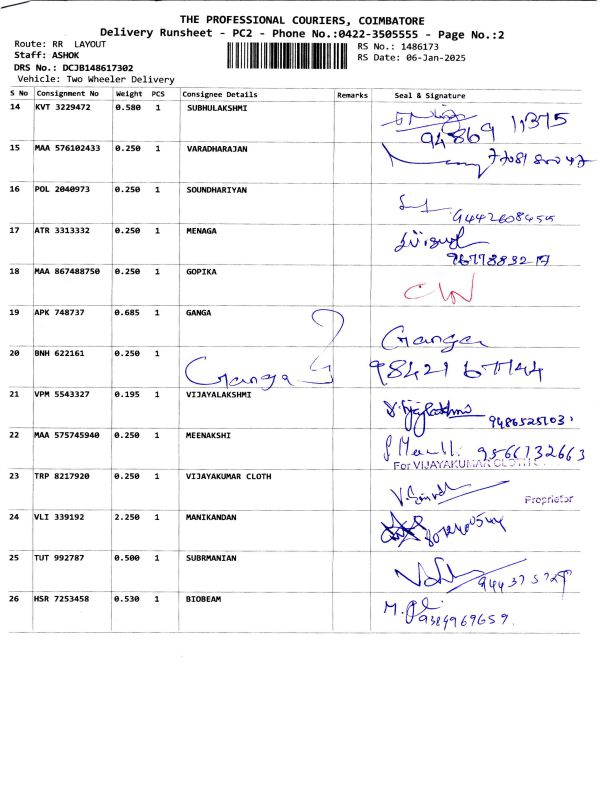 THE PROFESSIONAL COURIERS, COIMBATORE
Delivery Runsheet - PC2 - Phone No.:0422-3505555 - Page No.:2
Route: RR LAYOUT
RS No.: 1486173
Staff: ASHOK
RS Date: 06-Jan-2025
DRS No.: DCJB148617302
Vehicle: Two Wheeler Delivery
S No Consignment No Weight PCS Consignee Details Remarks Seal & Signature
14 KVT 3229472 0.580 1 SUBHULAKSHMI
94869 11375
15 MAA 576102433 0.250 1 VARADHARAJAN
16 POL 2040973 0.250 1 SOUNDHARIYAN
17 ATR 3313332 0.250 1 MENAGA
18 MAA 867488750 0.250 1 GOPIKA
19 APK 748737 0.685 1 GANGA Ganga
20 BNH 622161 0.250 1 Ganga
21 VPM 5543327 0.195 1 VIJAYALAKSHMI
22 MAA 575745940 0.250 1 MEENAKSHI 9566732663
For VIJAYAKUMAR CLOTH
23 TRP 8217920 0.250 1 VIJAYAKUMAR CLOTH
Proprietor
24 VLI 339192 2.250 1 MANIKANDAN
25 TUT 992787 0.500 1 SUBRMANIAN
26 HSR 7253458 0.530 1 BIOBEAM
9384969659